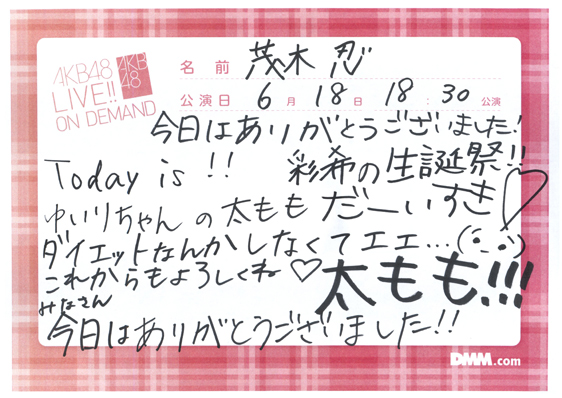 AKB48
LIVE!!
ON DEMAND
AKB
48
名前 茂木 忍
公演日 6月 18日 18:30 公演
今日はありがとうございました!
Today is !! 彩希の生誕祭!!
ゆいりちゃんの太もも だーいすき♡
ダイエットなんかしなくてエエ…
これからもよろしくね♡
太もも!!!
みなさん
今日はありがとうございました!!
DMM.com